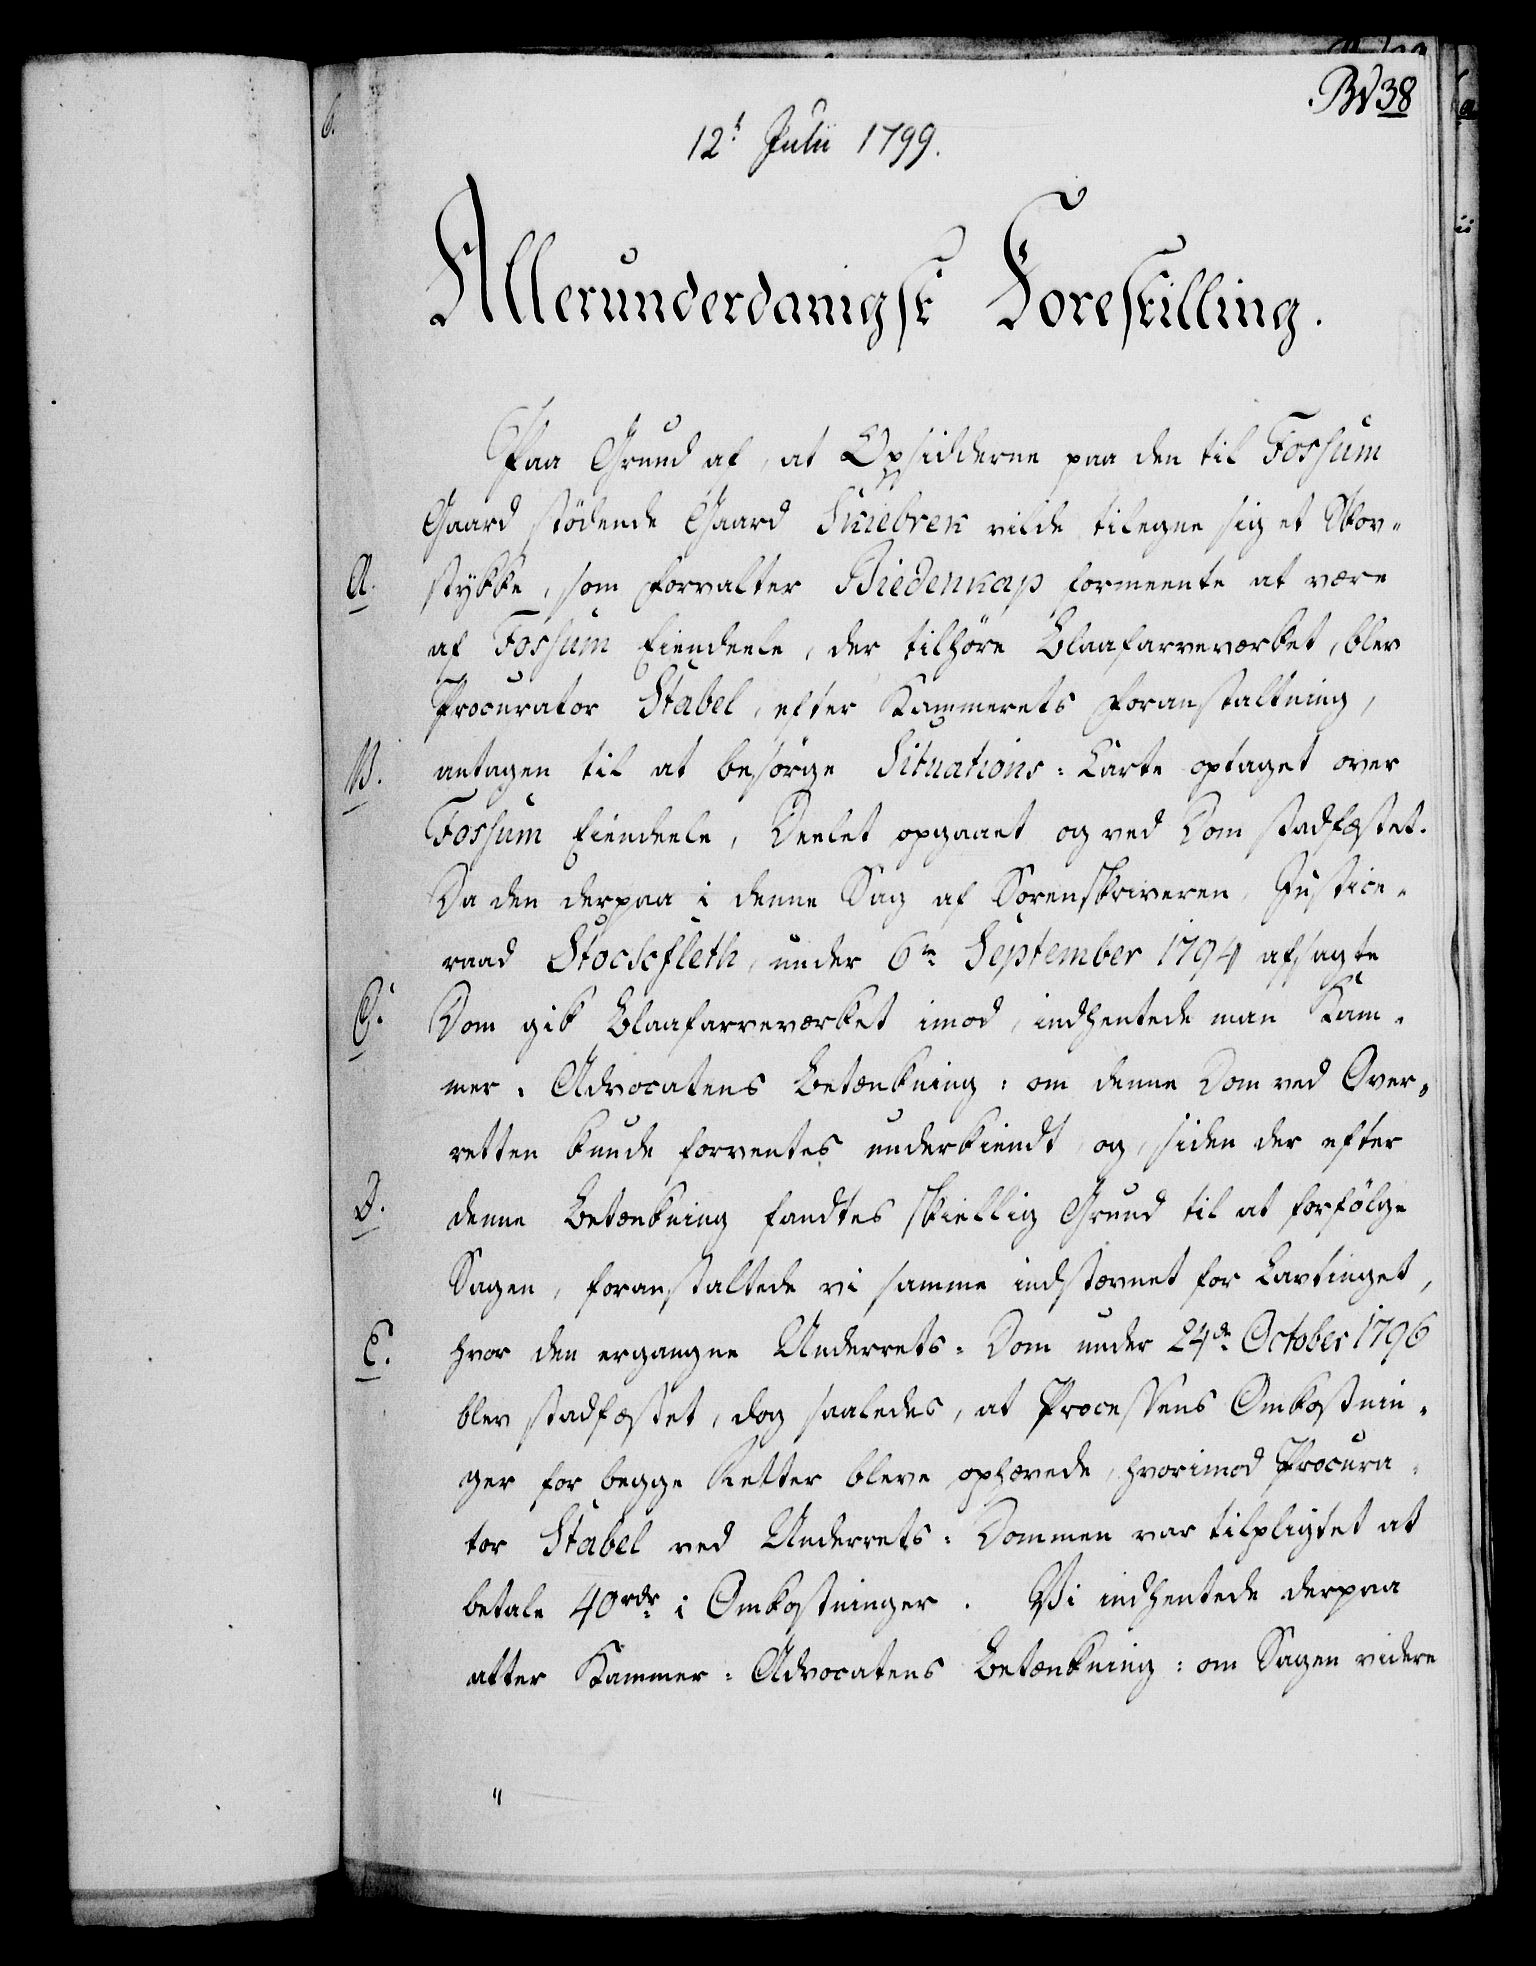 38
12t Julii 1799.
Allerunderdanigst Forestilling.
Paa Grund af, at Opsidderne paa den til Fossum
Gaard stödende Gaard Skiebrek vilde tilegne sig et Skov-
A. stykke, som Forvalter Biedenkap formeente at være
af Fossum Eiendeele, der tilhöre Blaafarveværket, blev
Procurator Stabel, efter Kammerets Foranstaltning,
B. antagen til at besörge Situations-Carte optaget over
Fossum Eiendeele, Deelet opgaaet og ved Dom stadfæstet.
Da den derpaa i denne Sag af Sorenskriveren, Justice-
raad Stockfleth, under 6te September 1794 afsagte
C. Dom gik Blaafarveværket imod, indhentede man Kam-
mer-Advocatens Betænkning: om denne Dom ved Over-
retten kunde forventes underkiendt, og, siden der efter
D. denne Betænkning fandtes skiellig Grund til at forfölge
Sagen, foranstaltede vi samme indstævnet for Lavtinget,
E. hvor den ergangne Underrets-Dom under 24de October 1796
blev stadfæstet, dog saaledes, at Processens Omkostnin-
ger for begge Retter bleve ophævede, hvorimod Procura-
tor Stabel ved Underrets-Dommen var tilpligtet at
betale 40 rdr i Omkostninger. Vi indhentede derpaa
atter Kammer-Advocatens Betænkning: om Sagen videre